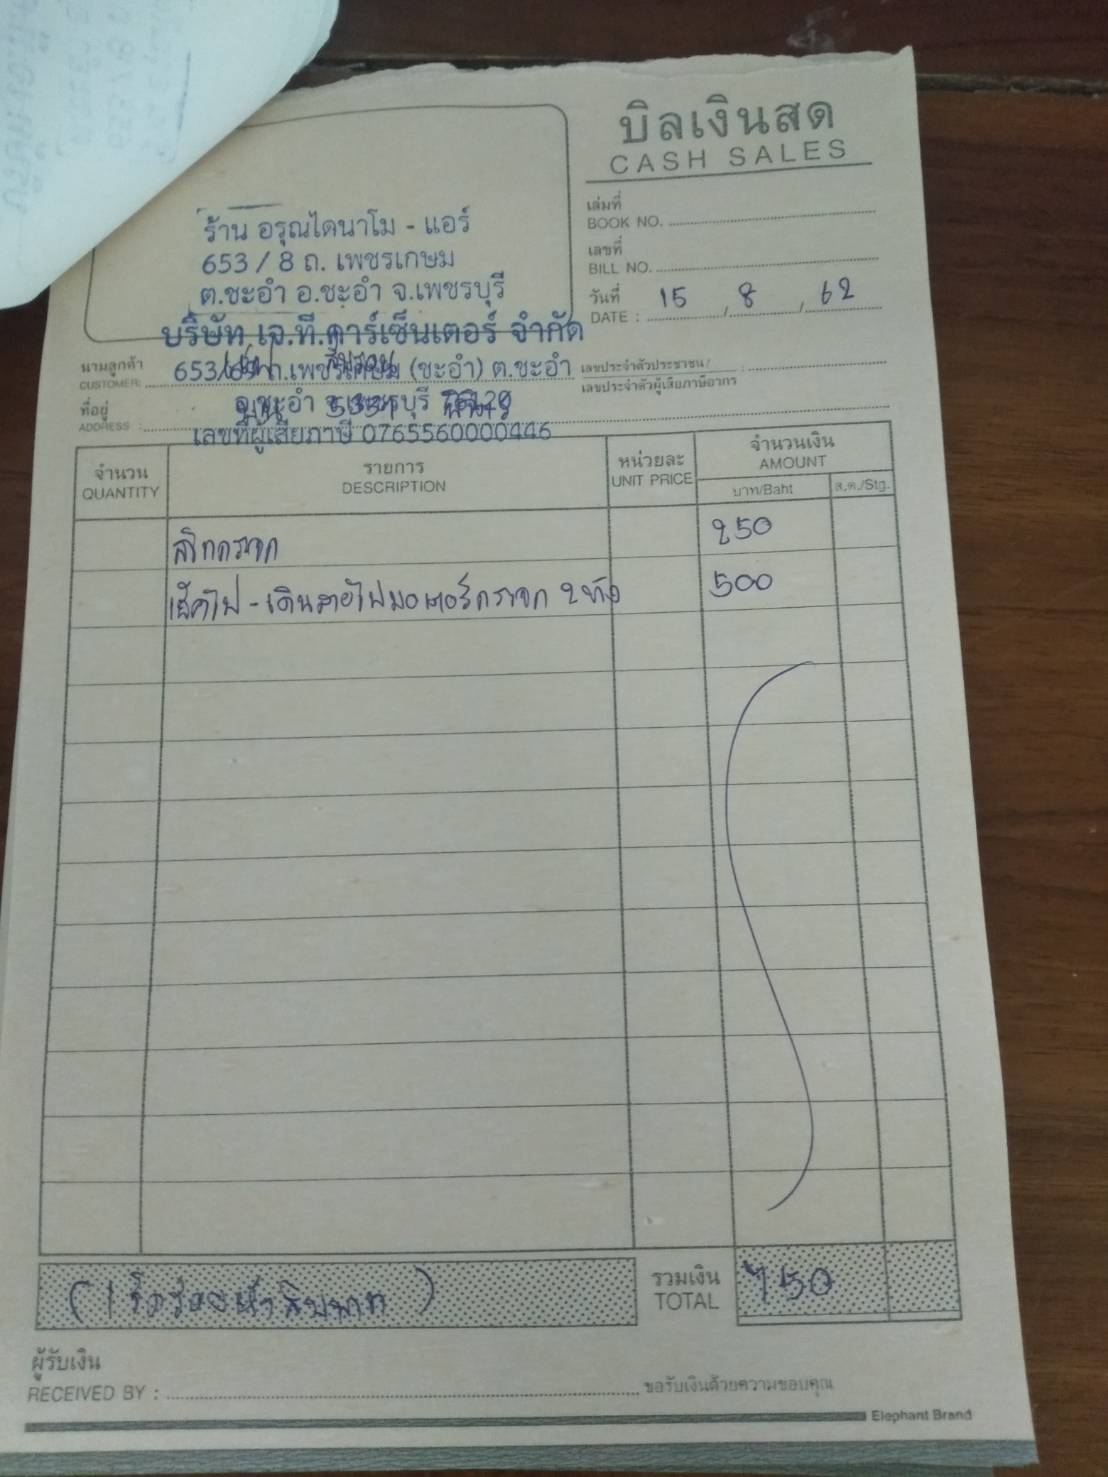 บิลเงินสด
CASH SALES
เล่มที่
BOOK NO.
เลขที่
BILL NO.
วันที่ 15 / 8 / 62
DATE :
ร้าน อรุณไดนาโม - แอร์
653 / 8 ถ. เพชรเกษม
ต.ชะอำ อ.ชะอำ จ.เพชรบุรี
บริษัท เจ.ที.คาร์เซ็นเตอร์ จำกัด
นามลูกค้า
CUSTOMER:
653/69 ถ.เพชรเกษม (ชะอำ) ต.ชะอำ
เลขประจำตัวประชาชน/
เลขประจำตัวผู้เสียภาษีอากร
ที่อยู่
ADDRESS :
อ.ชะอำ จ.เพชรบุรี 76120
เลขที่ผู้เสียภาษี 0765560000446
จำนวน รายการ หน่วยละ จำนวนเงิน
QUANTITY DESCRIPTION UNIT PRICE AMOUNT
บาท/Baht ส.ต./Stg.
250
เช็คไฟ - เดินสายไฟมอเตอร์กระจก 2 500
รวมเงิน 750
TOTAL
ผู้รับเงิน
RECEIVED BY : ขอรับเงินด้วยความขอบคุณ
Elephant Brand